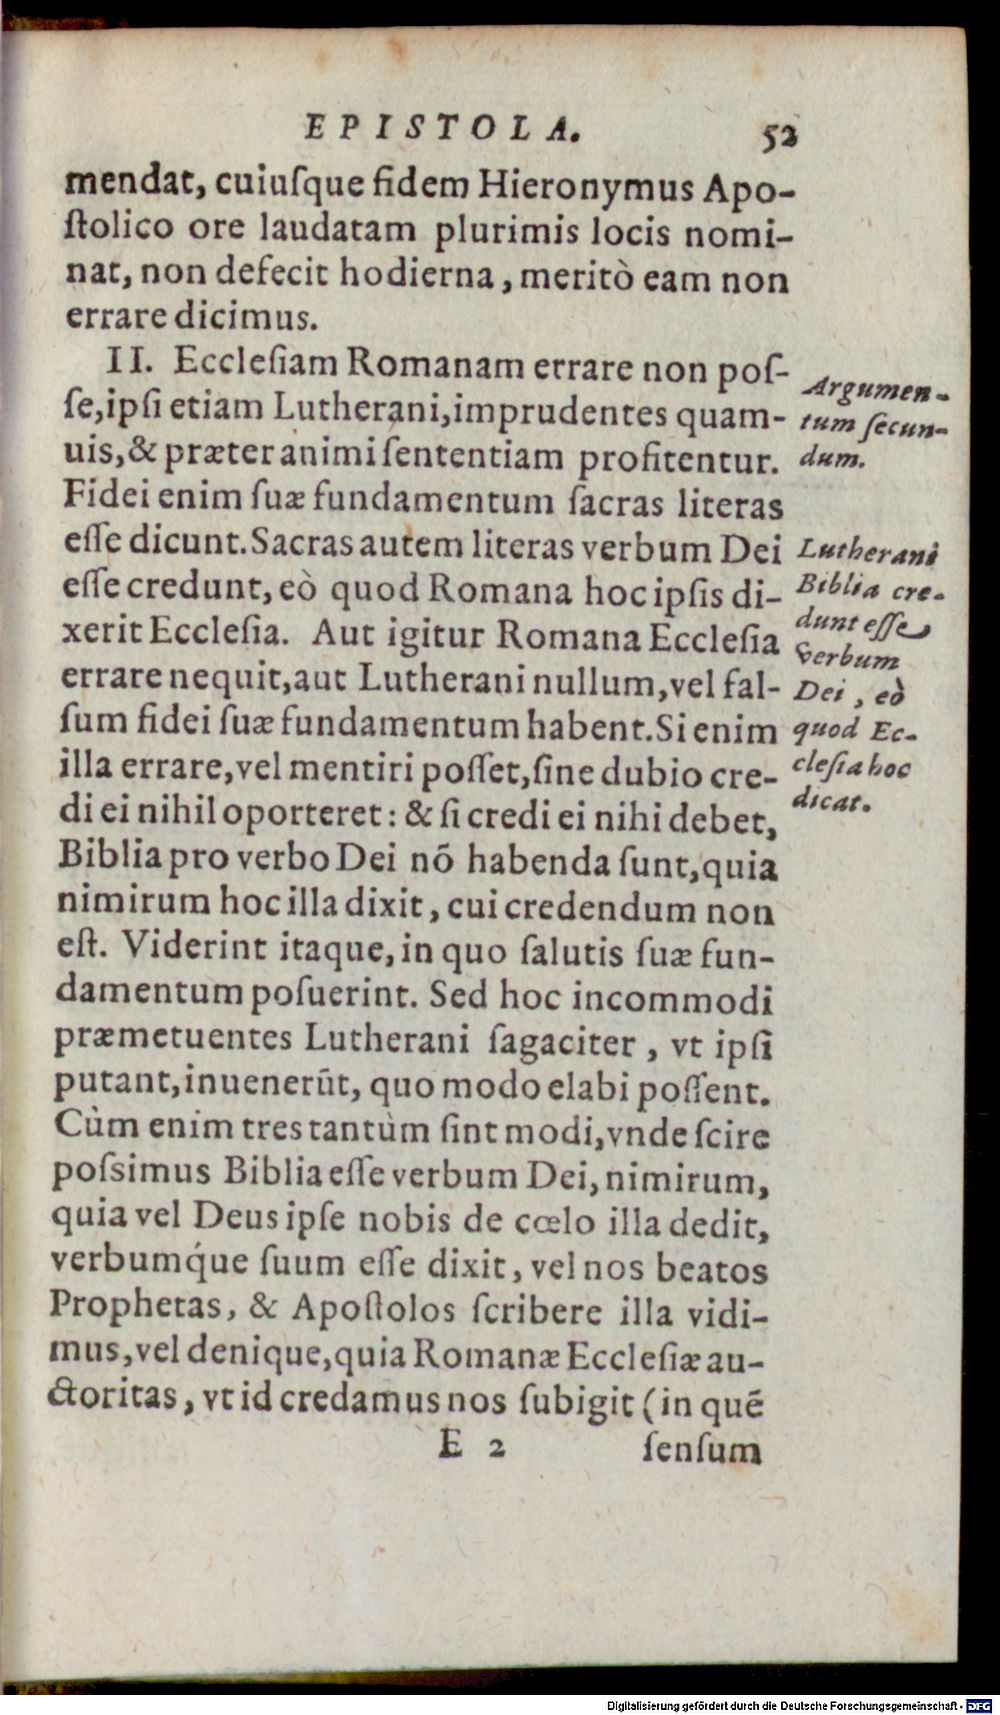 EPISTOLA. 52
mendat, cuiuſque fidem Hieronymus Apo-
ſtolico ore laudatam plurimis locis nomi-
nat, non defecit hodierna, meritò eam non
errare dicimus.
II. Eccleſiam Romanam errare non poſ-
ſe, ipſi etiam Lutherani, imprudentes quam-
uis, & præter animi ſententiam profitentur.
Fidei enim ſuæ fundamentum ſacras literas
eſſe dicunt. Sacras autem literas verbum Dei
eſſe credunt, eò quod Romana hoc ipſis di-
xerit Eccleſia. Aut igitur Romana Eccleſia
errare nequit, aut Lutherani nullum, vel fal-
ſum fidei ſuæ fundamentum habent. Si enim
illa errare, vel mentiri poſſet, ſine dubio cre-
di ei nihil oporteret: & ſi credi ei nihi debet,
Biblia pro verbo Dei nõ habenda ſunt, quia
nimirum hoc illa dixit, cui credendum non
eſt. Viderint itaque, in quo ſalutis ſuæ fun-
damentum poſuerint. Sed hoc incommodi
præmetuentes Lutherani ſagaciter, vt ipſi
putant, inuenerũt, quo modo elabi poſſent.
Cùm enim tres tantùm ſint modi, vnde ſcire
poſsimus Biblia eſſe verbum Dei, nimirum,
quia vel Deus ipſe nobis de cœlo illa dedit,
verbumq́ue ſuum eſſe dixit, vel nos beatos
Prophetas, & Apoſtolos ſcribere illa vidi-
mus, vel denique, quia Romanæ Eccleſiæ au-
ctoritas, vt id credamus nos ſubigit (in quẽ
E 2 ſenſum
Argumen-
tum ſecun-
dum.
Lutherani
Biblia cre-
dunt eſſe
verbum
Dei, eò
quod Ec-
cleſia hoc
dicat.
Digitalisierung gefördert durch die Deutsche Forschungsgemeinschaft - DFG